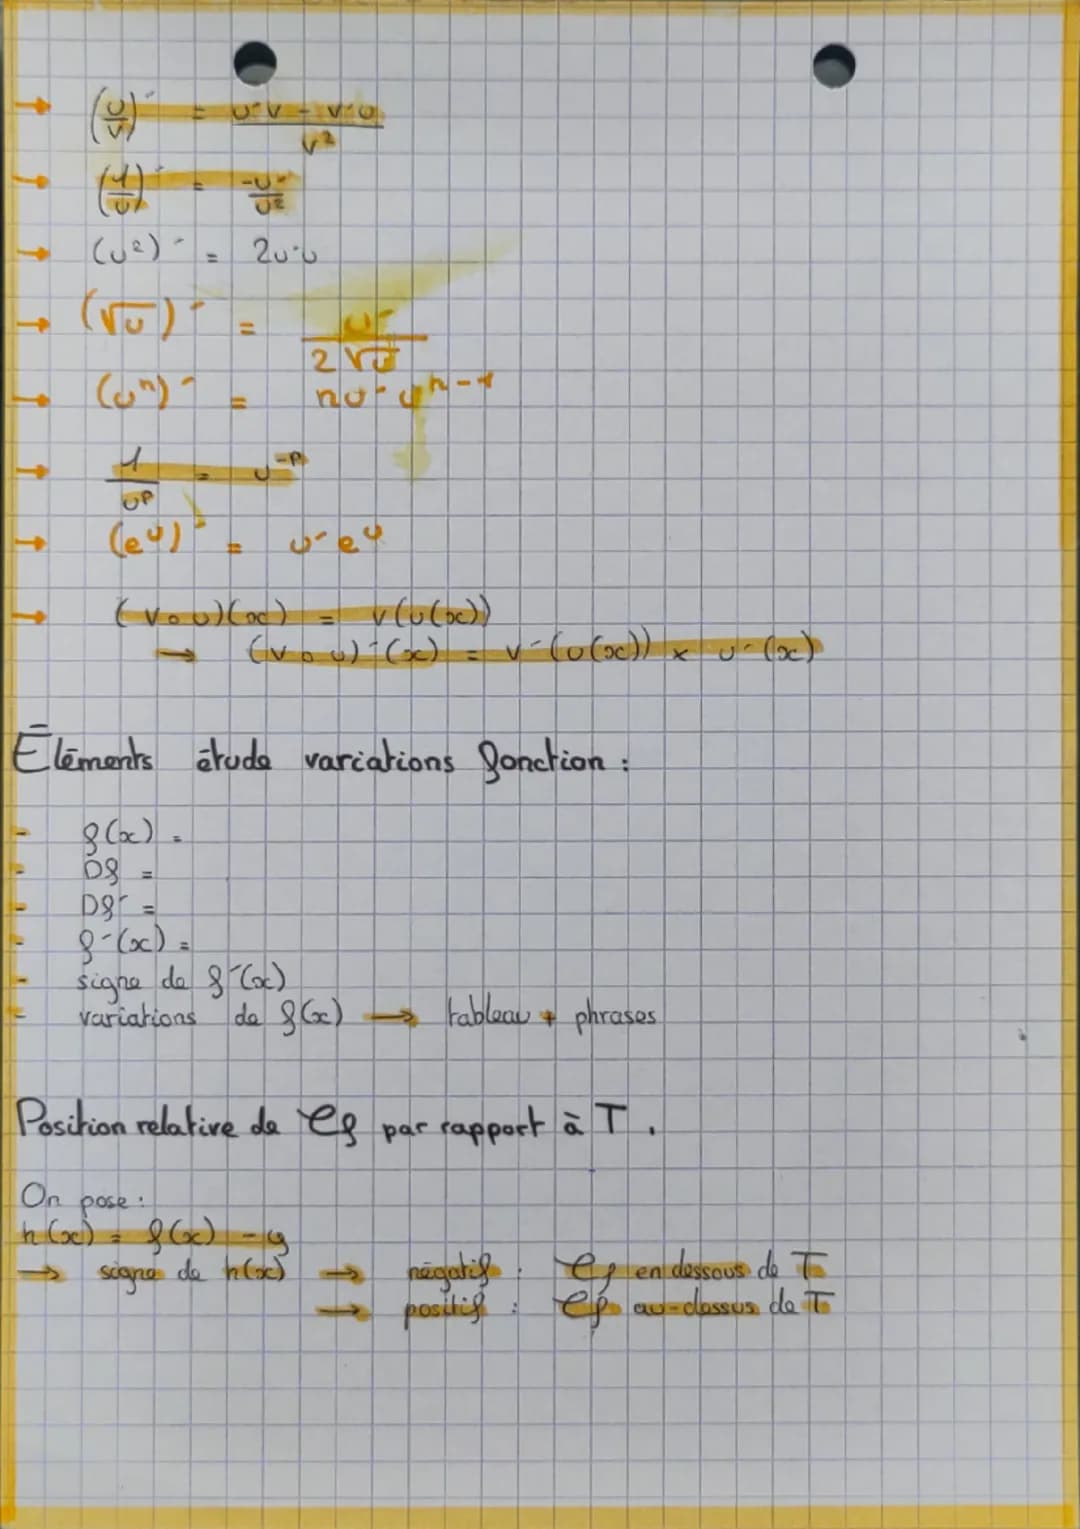 → (u/v)' = (u'v - v'u)/v²
→ (1/u)' = -u'/u²
→ (u²)' = 2u'u
→ (√u)' = u'/(2√u)
→ (uⁿ)' = nu'uⁿ⁻¹
→ 1/uᵖ = u⁻ᵖ
→ (eᵘ)' = u'eᵘ
→ (v∘u)(x) = v(u(x))
→ (v∘u)'(x) = v'(u(x)) × u'(x)
Éléments étude variations fonction :
- f(x) =
- Df =
- Df' =
- f'(x) =
- signe de f'(x)
- variations de f(x) → tableau + phrases
Position relative de Cf par rapport à T.
On pose :
h(x) = f(x) - y
→ signe de h(x) → négatif : Cf en dessous de T
→ positif : Cf au-dessus de T